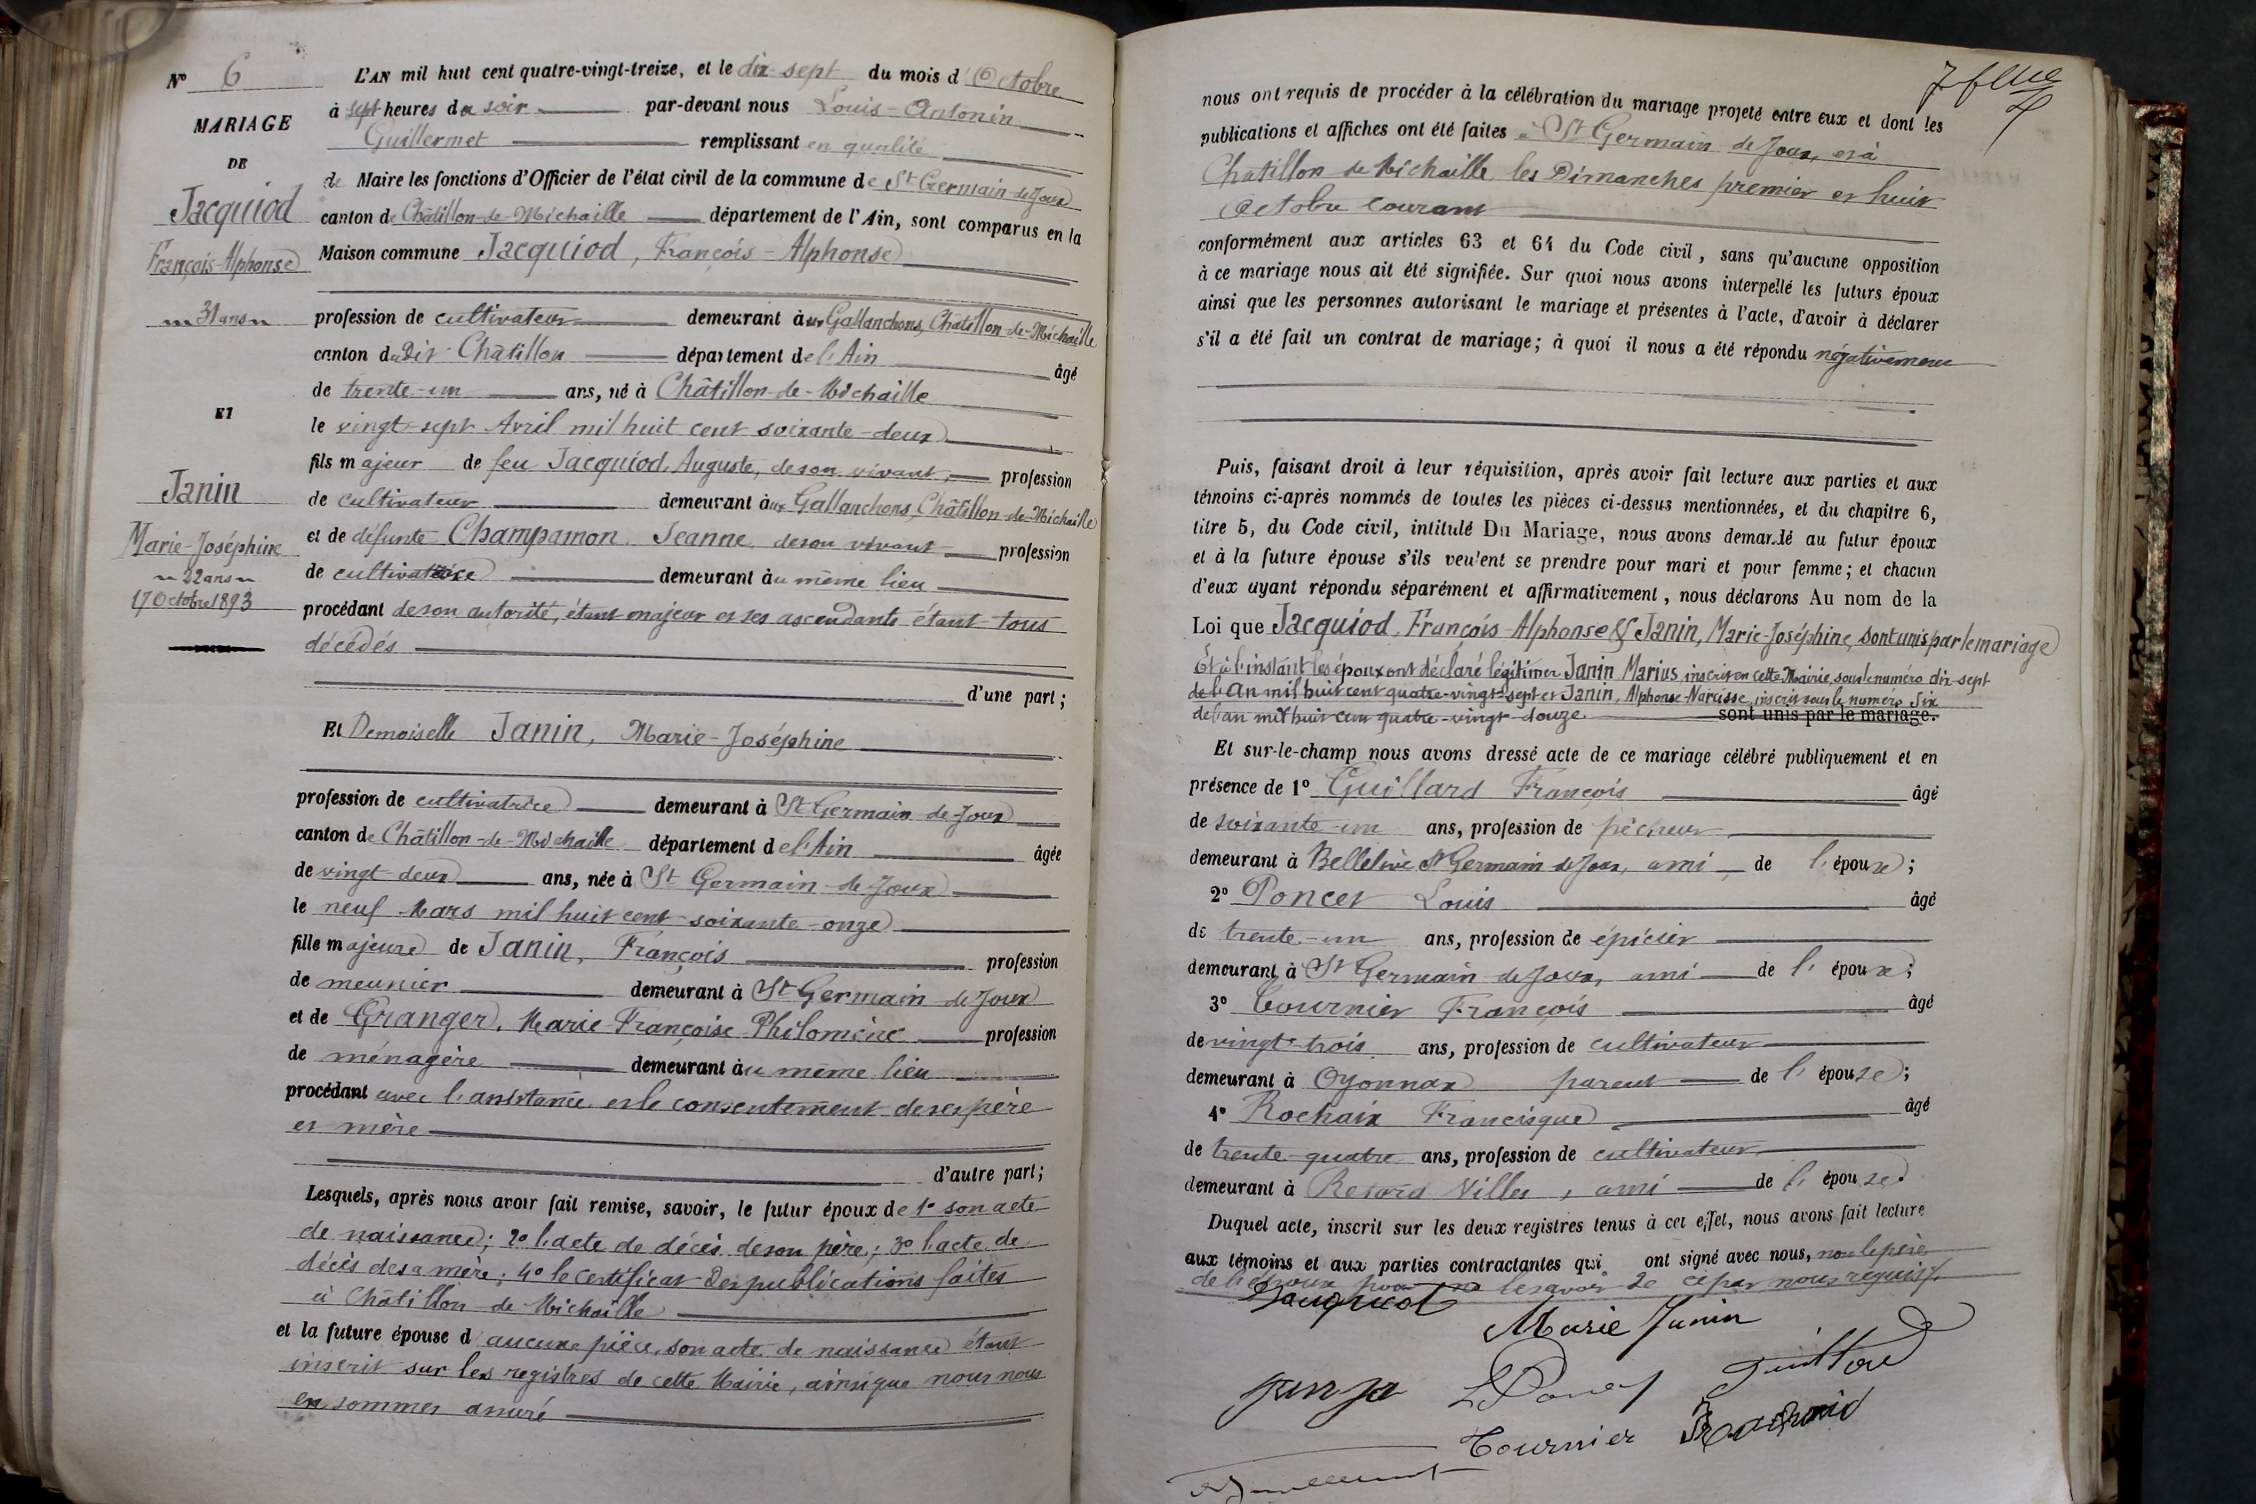 N° 6
MARIAGE
DE
Jacquiod
François-Alphonse
31 ans
ET
Janin
Marie-Joséphine
22 ans
17 Octobre 1893
L'AN mil huit cent quatre-vingt-treize, et le dix-sept du mois d'Octobre
à sept heures du soir par-devant nous Louis-Antonin
Guillermet remplissant en qualité
de Maire les fonctions d'Officier de l'état civil de la commune de St Germain-de-Joux
canton de Châtillon-de-Michaille département de l'Ain, sont comparus en la
Maison commune Jacquiod, François-Alphonse
profession de cultivateur demeurant aux Gallanchons, Châtillon-de-Michaille
canton du Dit Châtillon département de l'Ain âgé
de trente-un ans, né à Châtillon-de-Michaille
le vingt-sept Avril mil huit cent soixante-deux
fils majeur de feu Jacquiod, Auguste, de son vivant, profession
de cultivateur demeurant aux Gallanchons, Châtillon-de-Michaille
et de défunte Champamon Jeanne de son vivant profession
de cultivatrice demeurant au même lieu
procédant de son autorité, étant majeur et ses ascendants étant tous
décédés
d'une part;
Et Demoiselle Janin, Marie-Joséphine
profession de cultivatrice demeurant à St Germain-de-Joux
canton de Châtillon-de-Michaille département de l'Ain âgée
de vingt-deux ans, née à St Germain-de-Joux
le neuf Mars mil huit cent soixante-onze
fille majeure de Janin, François profession
de meunier demeurant à St Germain-de-Joux
et de Granger, Marie-Françoise Philomène profession
de ménagère demeurant au même lieu
procédant avec l'assistance et le consentement de ses père
et mère
d'autre part;
Lesquels, après nous avoir fait remise, savoir, le futur époux de 1° son acte
de naissance; 2° l'acte de décès de son père; 3° l'acte de
décès de sa mère; 4° le certificat des publications faites
à Châtillon de Michaille
et la future épouse d'aucune pièce, son acte de naissance étant
inscrit sur les registres de cette Mairie, ainsi que nous nous
en sommes assuré
nous ont requis de procéder à la célébration du mariage projeté entre eux et dont les
publications et affiches ont été faites à St Germain de Joux, et à
Châtillon de Michaille, les Dimanches premier et huit
Octobre courant
conformément aux articles 63 et 64 du Code civil, sans qu'aucune opposition
à ce mariage nous ait été signifiée. Sur quoi nous avons interpellé les futurs époux
ainsi que les personnes autorisant le mariage et présentes à l'acte, d'avoir à déclarer
s'il a été fait un contrat de mariage; à quoi il nous a été répondu négativement
Puis, faisant droit à leur réquisition, après avoir fait lecture aux parties et aux
témoins ci-après nommés de toutes les pièces ci-dessus mentionnées, et du chapitre 6,
titre 5, du Code civil, intitulé Du Mariage, nous avons demandé au futur époux
et à la future épouse s'ils veulent se prendre pour mari et pour femme; et chacun
d'eux ayant répondu séparément et affirmativement, nous déclarons Au nom de la
Loi que Jacquiod, François-Alphonse & Janin, Marie-Joséphine, sont unis par le mariage
Et à l'instant les époux ont déclaré légitimer Janin Marius, inscrit en cette Mairie, sous le numéro dix-sept
de l'An mil huit cent quatre-vingt-sept et Janin, Alphonse-Narcisse, inscrit sous le numéro six
de l'an mil huit cent quatre-vingt-douze sont unis par le mariage.
Et sur-le-champ nous avons dressé acte de ce mariage célébré publiquement et en
présence de 1° Guillard François âgé
de soixante-un ans, profession de pêcheur
demeurant à Bellelive St Germain de Joux, ami de l'épouse;
2° Poncet Louis âgé
de trente-un ans, profession de épicier
demeurant à St Germain de Joux, ami de l'épouse;
3° Tournier François âgé
de vingt-trois ans, profession de cultivateur
demeurant à Oyonnax parent de l'épouse;
4° Rochaix Francisque âgé
de trente-quatre ans, profession de cultivateur
demeurant à ami de l'épouse.
Duquel acte, inscrit sur les deux registres tenus à cet effet, nous avons fait lecture
aux témoins et aux parties contractantes qui ont signé avec nous, non le père
de l'épouse pour ne le savoir de ce par nous requis.
Jacquiod
Marie Janin
L Poncet
Guillard
Tournier